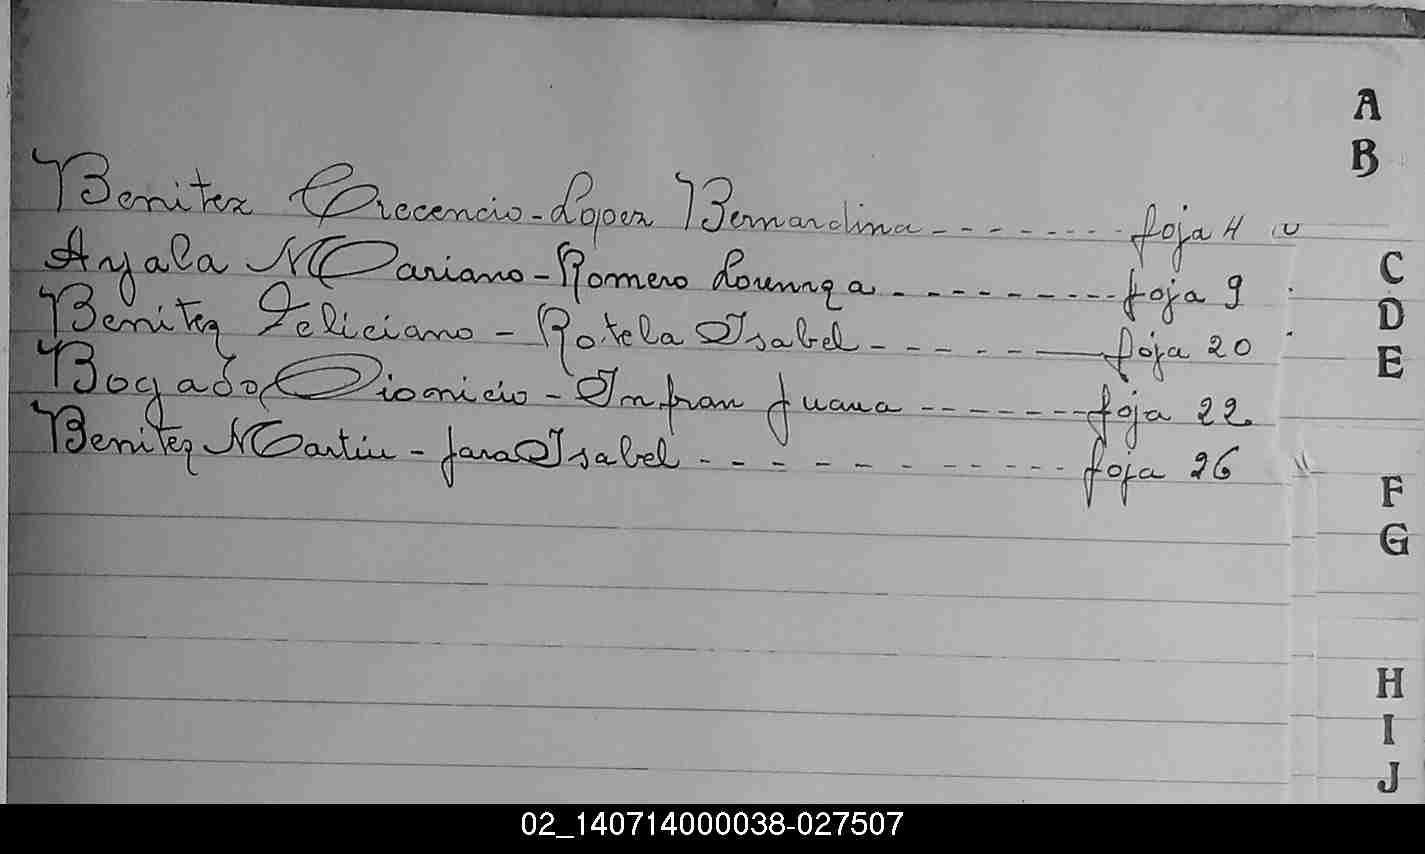 Benitez Crecencio - Lopez Bernardina - - - - - - - - foja 4
Ayala Mariano - Romero Lorenza - - - - - - - - - foja 9
Benitez Feliciano - Rotela Isabel - - - - - - foja 20
Bogado Dionicio - Infran Juana - - - - - - - foja 22
Benitez Martin - Jara Isabel - - - - - - - - - - - - foja 26
A
B
C
D
E
F
G
H
I
J
02_140714000038-027507